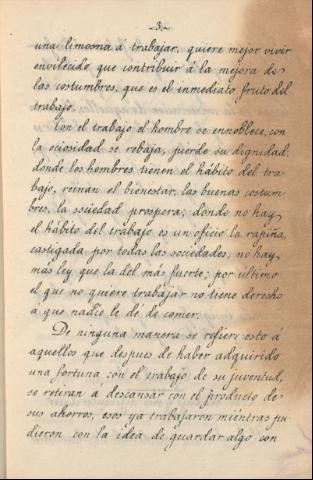 -3-
una limosna á trabajar, quiere mejor vivir
envilecido que contribuir á la mejora de
las costumbres, que es el inmediato fruto del
trabajo.
Con el trabajo el hombre se ennoblece, con
la ociosidad se rebaja, pierde su dignidad;
donde los hombres tienen el hábito del tra-
bajo, reinan el bienestar, las buenas costum-
bres, la sociedad prospera; donde no hay
el hábito del trabajo es un oficio la rapiña,
castigada por todas las sociedades, no hay
mas ley que la del más fuerte; por ultimo
el que no quiere trabajar no tiene derecho
á que nadie le dé de comer.
De ninguna manera se refiere esto á
aquellos que despues de haber adquirido
una fortuna con el trabajo de su juventud,
se retiran á descansar con el producto de
sus ahorros, esos ya trabajaron miéntras pu
dieron con la idea de guardar algo con